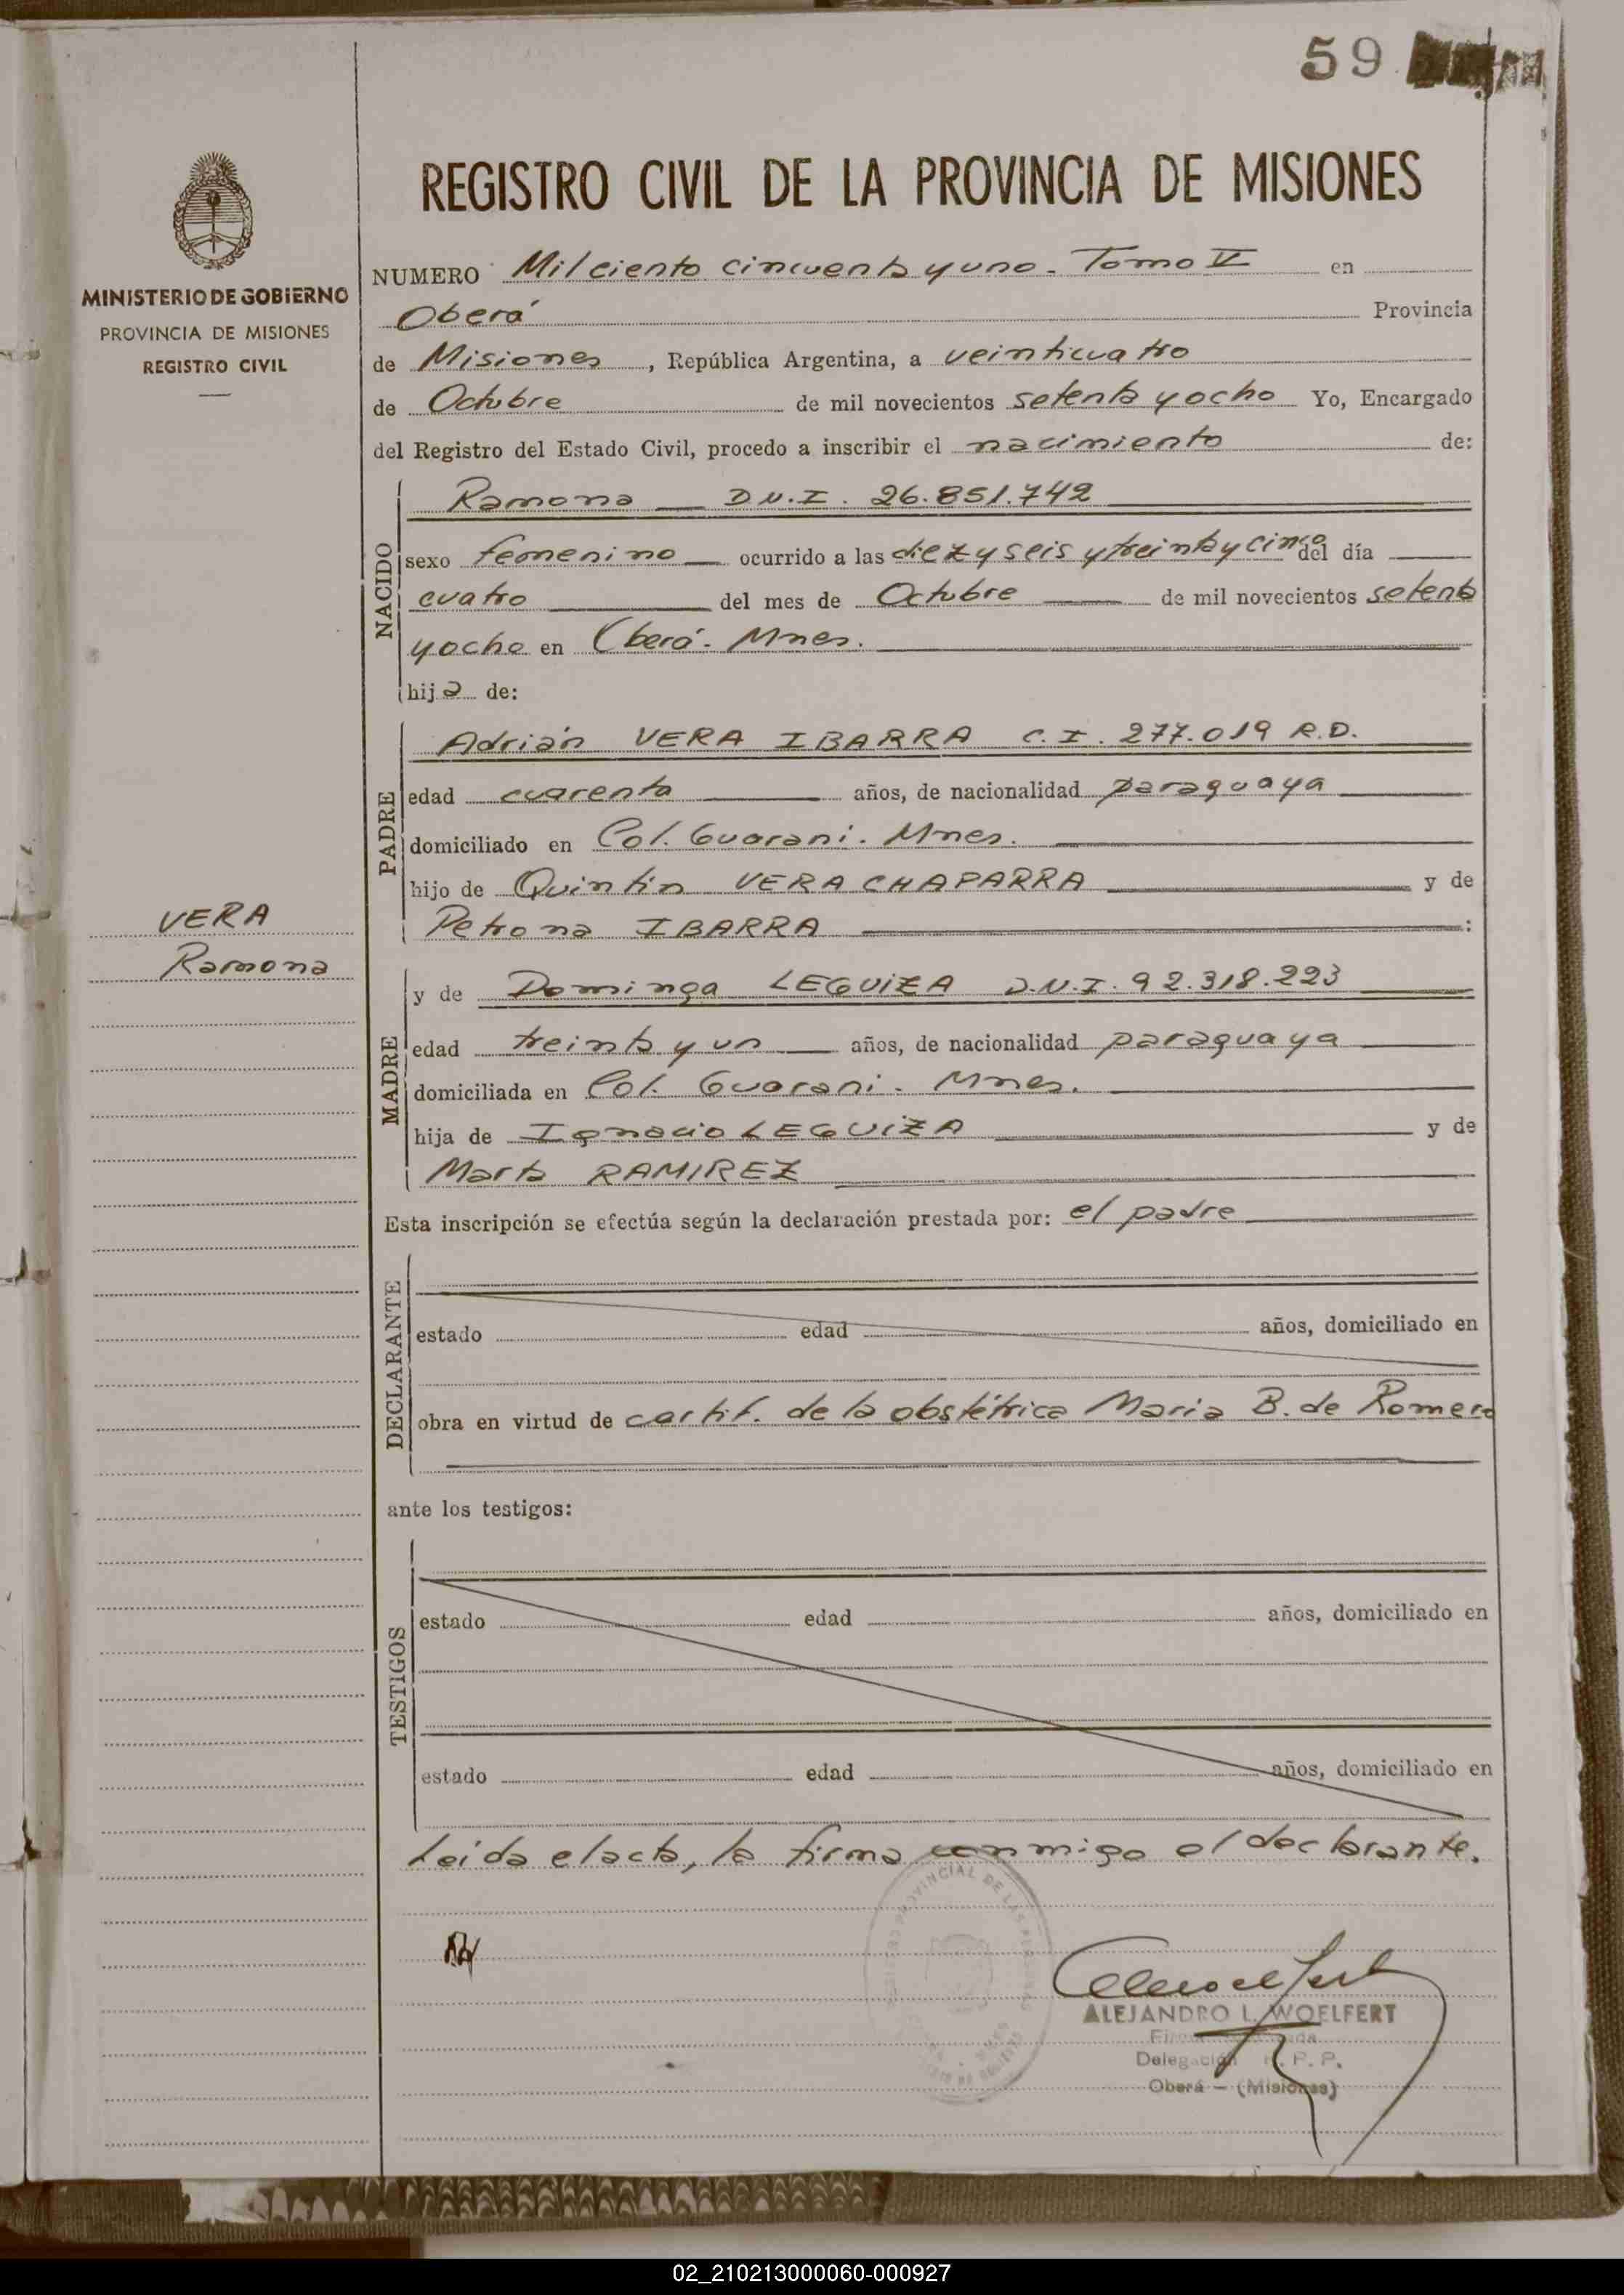 59
REGISTRO CIVIL DE LA PROVINCIA DE MISIONES
MINISTERIO DE GOBIERNO
PROVINCIA DE MISIONES
REGISTRO CIVIL
NUMERO Mil ciento cincuenta y uno. Tomo V en
Oberá Provincia
de Misiones, República Argentina, a veinticuatro
de Octubre de mil novecientos setenta y ocho Yo, Encargado
del Registro del Estado Civil, procedo a inscribir el nacimiento de:
NACIDO
Ramona D.N.I. 26.851.742
sexo femenino ocurrido a las diez y seis y treinta y cinco del día
cuatro del mes de Octubre de mil novecientos setenta
y ocho en Oberá. Mnes.
hija de:
PADRE
Adrián VERA IBARRA C.I. 277.019 R.D.
edad cuarenta años, de nacionalidad paraguaya
domiciliado en Col. Guarani. Mnes.
hijo de Quintin VERA CHAPARRA y de
Petrona IBARRA :
VERA
Ramona
MADRE
y de Dominga LEGUIZA D.N.I. 92.318.223
edad treinta y un años, de nacionalidad paraguaya
domiciliada en Col. Guarani. Mnes.
hija de Ignacio LEGUIZA y de
Marta RAMIREZ
Esta inscripción se efectúa según la declaración prestada por: el padre
DECLARANTE
estado edad años, domiciliado en
obra en virtud de certif. de la obstétrica Maria B. de Romero
ante los testigos:
TESTIGOS
estado edad años, domiciliado en
estado edad años, domiciliado en
Leida el acta, la firma conmigo el declarante.
ALEJANDRO L. WOELFERT
Delegación R. P. P.
Oberá - (Misiones)
02_210213000060-000927